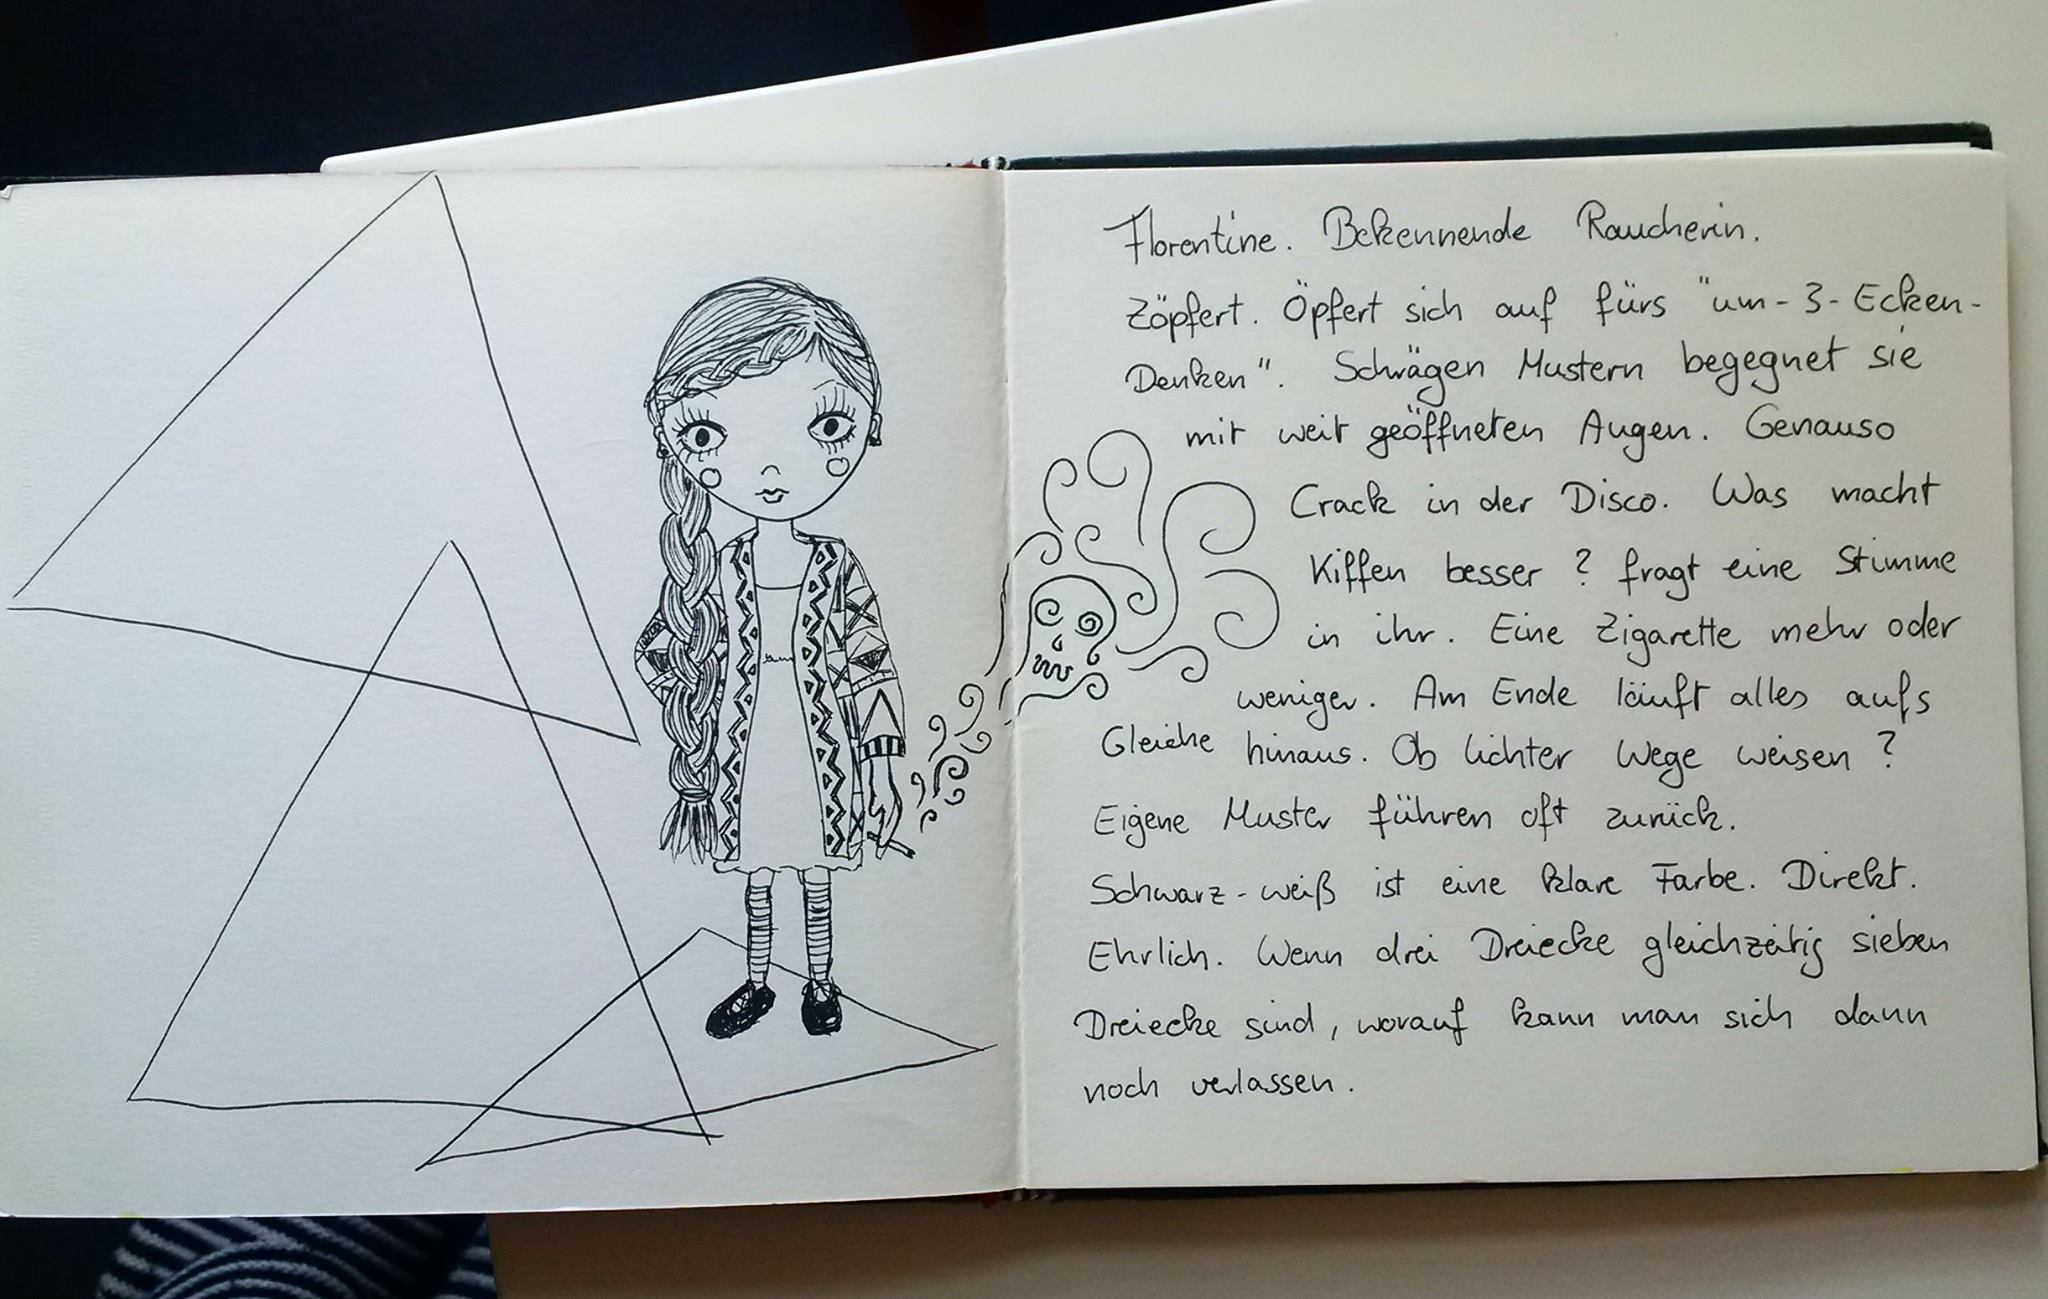 Florentine. Bekennende Raucherin.
Zöpfert. Öpfert sich auf fürs "um-3-Ecken-
Denken". Schrägen Mustern begegnet sie
mit weit geöffneten Augen. Genauso
Crack in der Disco. Was macht
Kiffen besser? fragt eine Stimme
in ihr. Eine Zigarette mehr oder
weniger. Am Ende läuft alles aufs
Gleiche hinaus. Ob lichter Wege weisen?
Eigene Muster führen oft zurück.
Schwarz-weiß ist eine klare Farbe. Direkt.
Ehrlich. Wenn drei Dreiecke gleichzeitig sieben
Dreiecke sind, worauf kann man sich dann
noch verlassen.